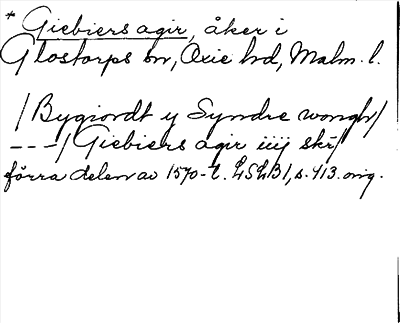 * Giebiers agir, åker i
Glostorps sn, Oxie hd, Malm. l.
/Bygiordt y Syndre wongh/
---/ Giebiers agir iiij skr/
förra delen av 1570-t. LSLB1, s. 413. orig.